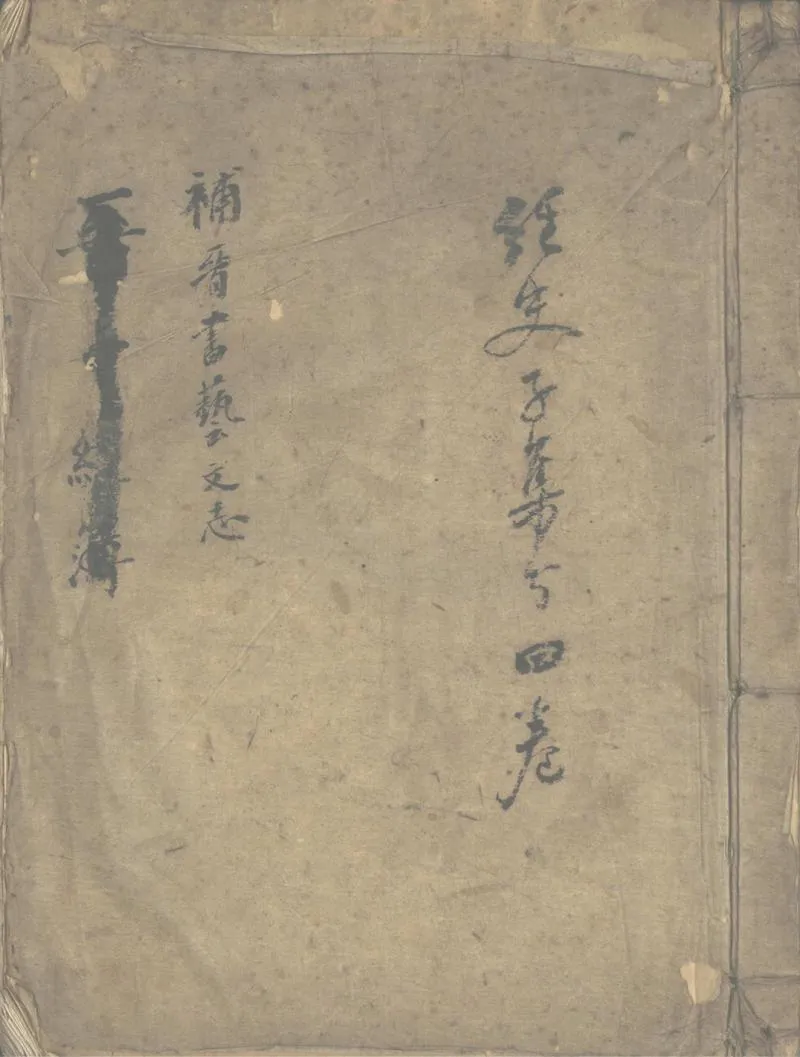 經史子集部分四卷
補晉書藝文志
簿